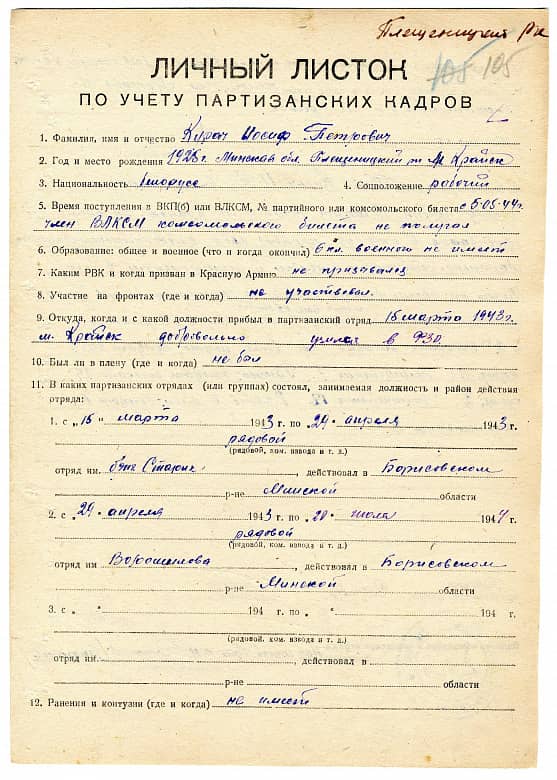 Плещеницкий р-н
105 105
ЛИЧНЫЙ ЛИСТОК
ПО УЧЕТУ ПАРТИЗАНСКИХ КАДРОВ
1. Фамилия, имя и отчество Иосиф Петрович
2. Год и место рождения 1925 г. Минская обл. Плещеницкий м. Крайск
3. Национальность белорусс 4. Соцположение рабочий
5. Время поступления в ВКП(б) или ВЛКСМ, № партийного или комсомольского билета с 5.05.44 г.
член ВЛКСМ комсомольского билета не получал
6. Образование общее и военное (что и когда окончил) 6 кл. военного не имеет
7. Каким РВК и когда призван в Красную Армию не призывался
8. Участие на фронтах (где и когда) не участвовал.
9. Откуда, когда и с какой должности прибыл в партизанский отряд 15 марта 1943 г.
м. Крайск добровольно учился в ФЗО.
10. Был ли в плену (где и когда) не был
11. В каких партизанских отрядах (или группах) состоял, занимаемая должность и район действия
отряда:
1. с „15" марта 1943 г. по „29" апреля 1943 г.
рядовой
(рядовой, ком. взвода и т. д.)
отряд им. Старик, действовал в Борисовском
р-не Минской области
2. с „29" апреля 1943 г. по „20" июля 1944 г.
рядовой
(рядовой, ком. взвода и т. д.)
отряд им Ворошилова, действовал в Борисовском
р-не Минской области
3. с „ " 194 г. по „ " 194 г.
(рядовой, ком. взвода и т. д.)
отряд им., действовал в
р-не области
12. Ранения и контузии (где и когда) не имеет